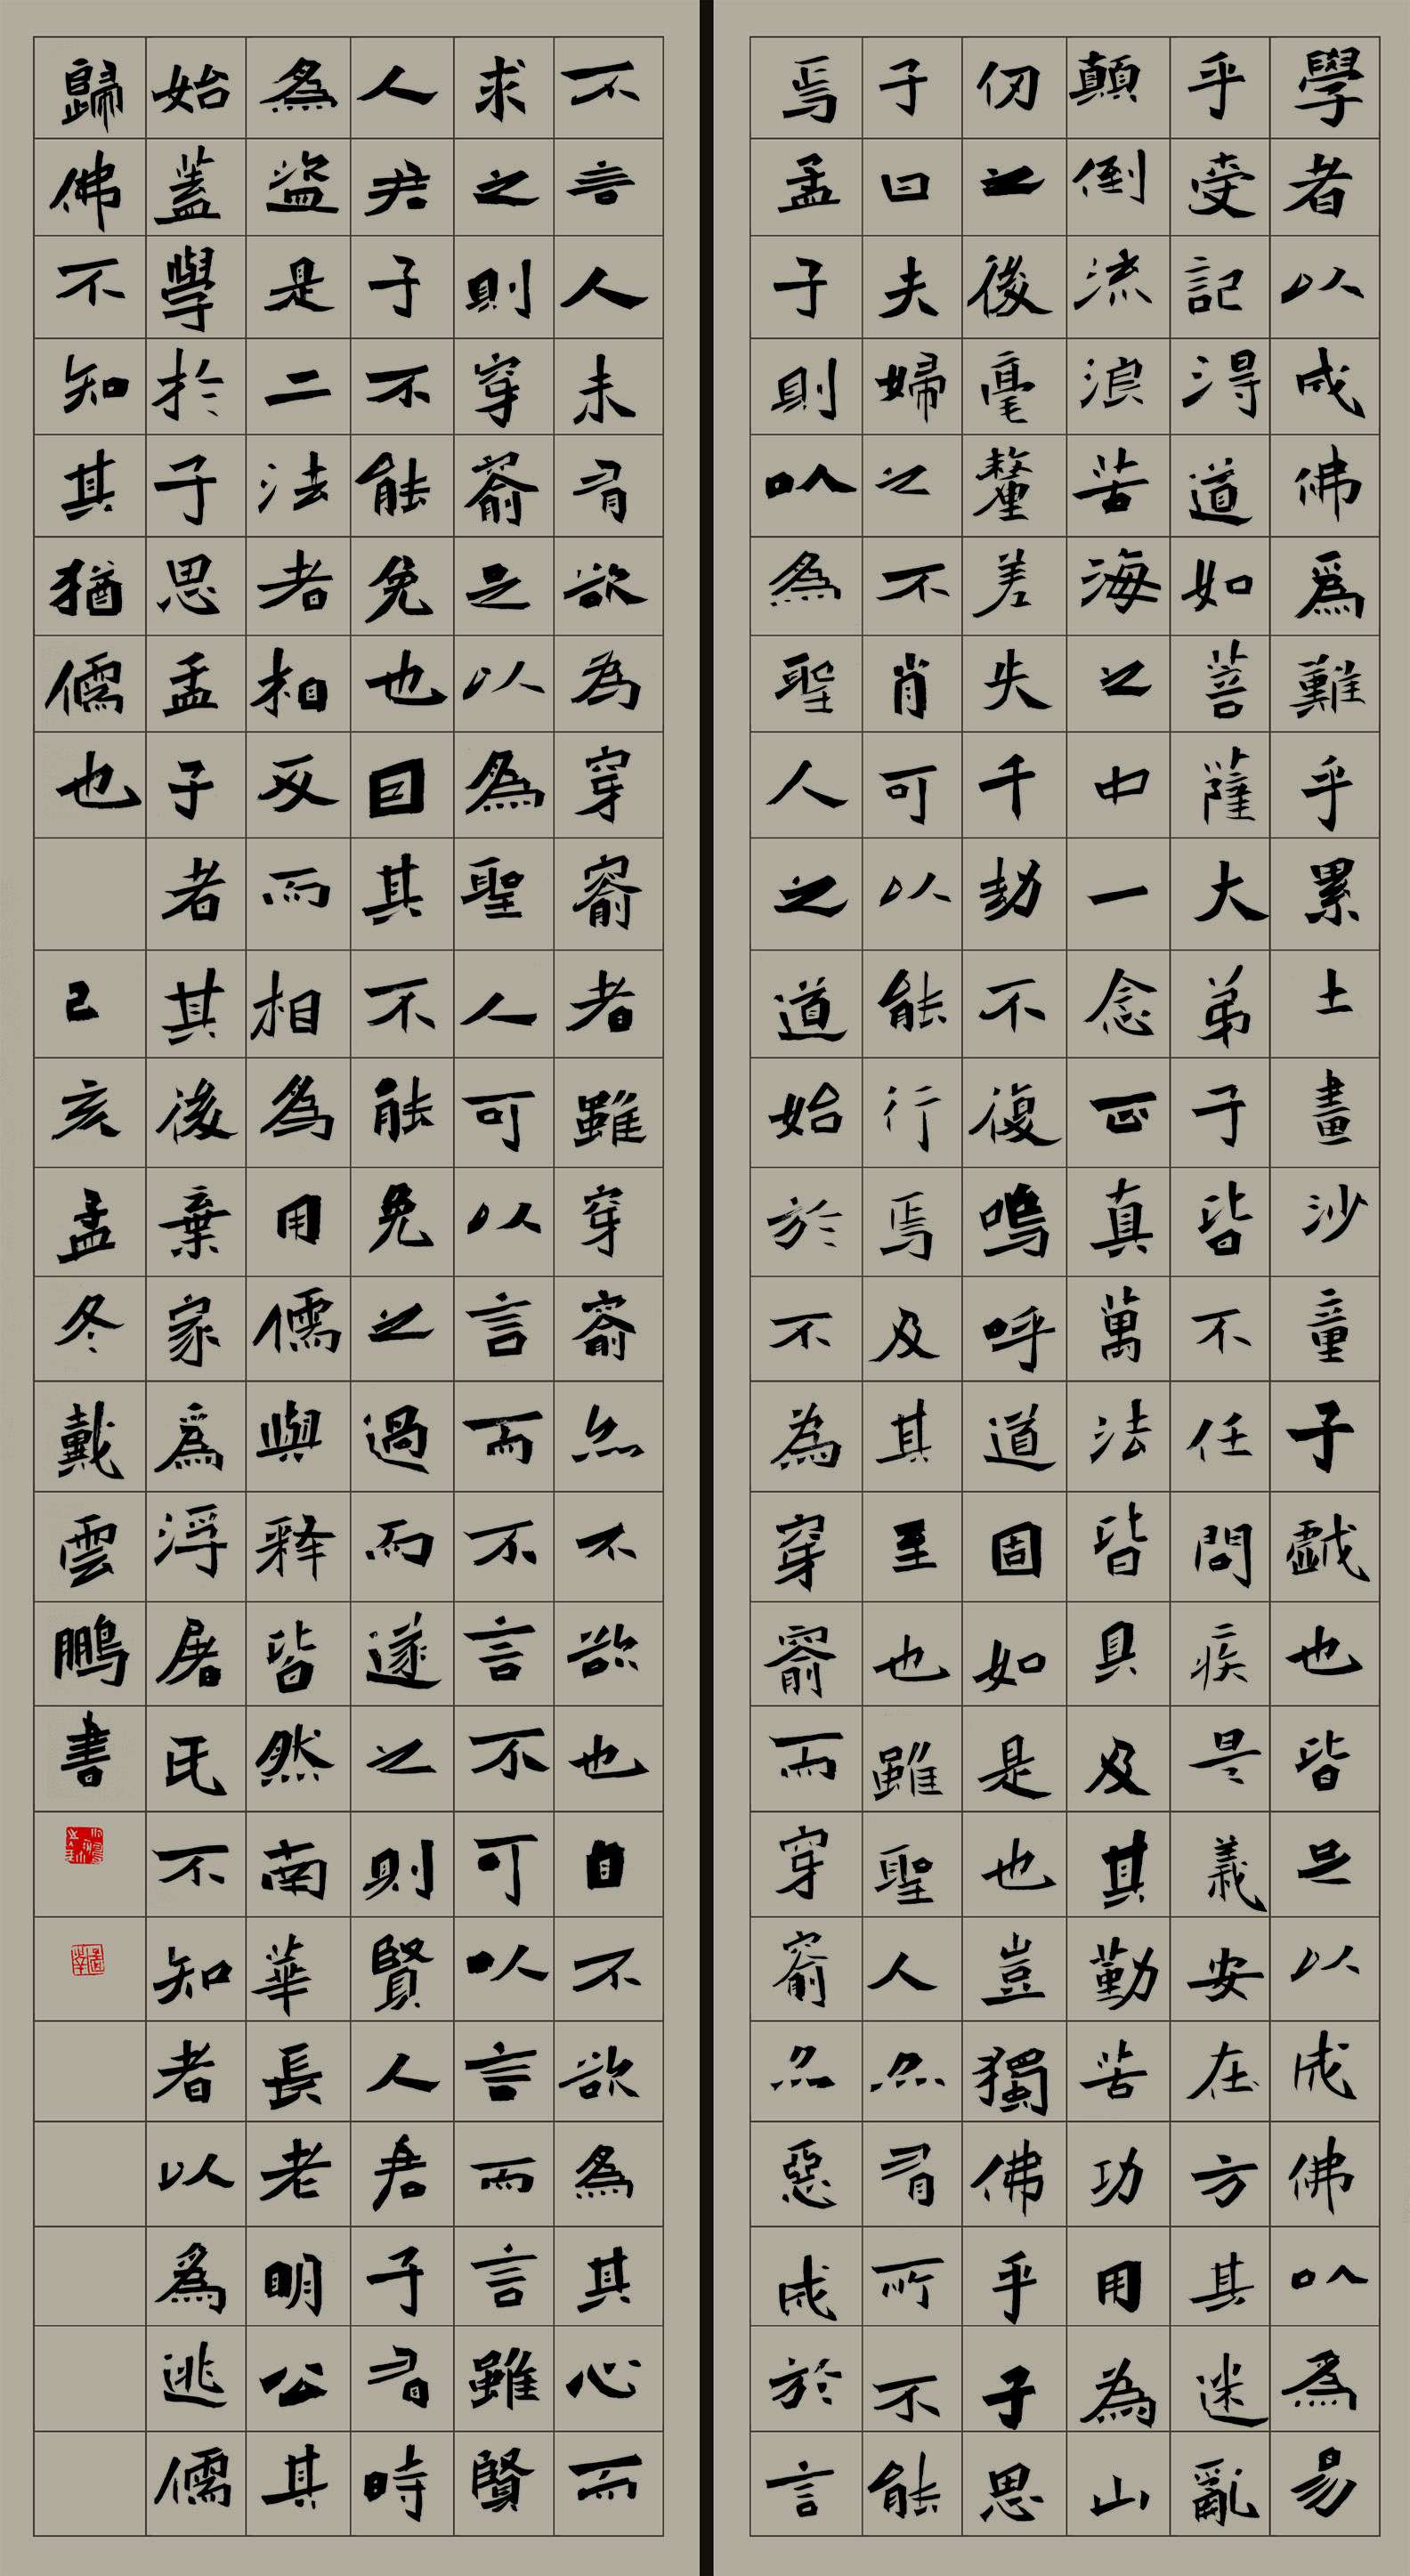 學者以成佛爲難乎累土畫沙童子戲也皆足以成佛以爲易
乎受記得道如菩薩大弟子皆不任問疾是義安在方其迷亂
顛倒流浪苦海之中一念正真萬法皆具及其勤苦功用為山
仞之後毫釐差失千劫不復嗚呼道固如是也豈獨佛乎子思
子曰夫婦之不肖可以能行焉及其至也雖聖人亦有所不能
焉孟子則以為聖人之道始於不為穿窬而穿窬亦惡成於言
不言人未有欲為穿窬者雖穿窬亦不欲也自不欲為其心而
求之則穿窬足以為聖人可以言而不言不可以言而言雖賢
人君子不能免也因其不能免之過而遂之則賢人君子有時
為盜是二法者相反而相為用儒與釋皆然南華長老明公其
始蓋學於子思孟子者其後棄家爲浮屠氏不知者以爲逃儒
歸佛不知其猶儒也 己亥孟冬戴雲鵬書